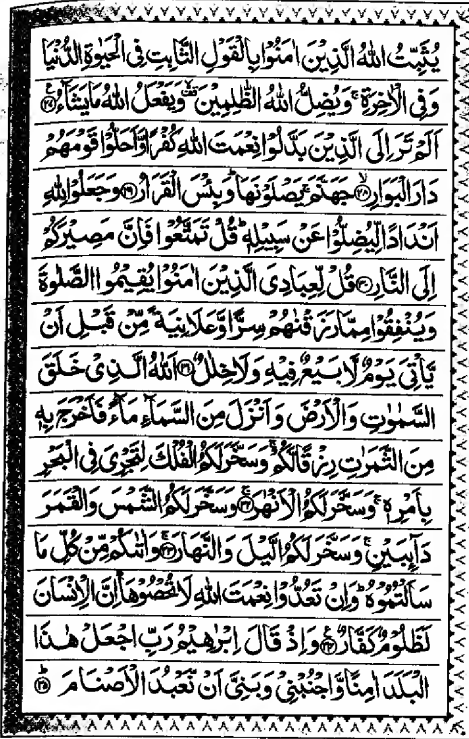 يُثَبِّتُ اللهُ الَّذِيْنَ اٰمَنُوْا بِالْقَوْلِ الثَّابِتِ فِي الْحَيٰوةِ الدُّنْيَا
وَفِي الْاٰخِرَةِ ۚ وَيُضِلُّ اللهُ الظّٰلِمِيْنَ ۙ وَيَفْعَلُ اللهُ مَا يَشَآءُ ۝۲۷
اَلَمْ تَرَ اِلَى الَّذِيْنَ بَدَّلُوْا نِعْمَتَ اللهِ كُفْرًا وَّاَحَلُّوْا قَوْمَهُمْ
دَارَ الْبَوَارِ ۝۲۸ جَهَنَّمَ ۚ يَصْلَوْنَهَا ۭ وَبِئْسَ الْقَرَارُ ۝۲۹ وَجَعَلُوْا لِلّٰهِ
اَنْدَادًا لِّيُضِلُّوْا عَنْ سَبِيْلِهٖ ۭ قُلْ تَمَتَّعُوْا فَاِنَّ مَصِيْرَكُمْ
اِلَى النَّارِ ۝۳۰ قُلْ لِّعِبَادِيَ الَّذِيْنَ اٰمَنُوْا يُقِيْمُوا الصَّلٰوةَ
وَيُنْفِقُوْا مِمَّا رَزَقْنٰهُمْ سِرًّا وَّعَلَانِيَةً مِّنْ قَبْلِ اَنْ
يَّاْتِيَ يَوْمٌ لَّا بَيْعٌ فِيْهِ وَلَا خِلٰلٌ ۝۳۱ اَللهُ الَّذِيْ خَلَقَ
السَّمٰوٰتِ وَالْاَرْضَ وَاَنْزَلَ مِنَ السَّمَآءِ مَآءً فَاَخْرَجَ بِهٖ
مِنَ الثَّمَرٰتِ رِزْقًا لَّكُمْ ۚ وَسَخَّرَ لَكُمُ الْفُلْكَ لِتَجْرِيَ فِي الْبَحْرِ
بِاَمْرِهٖ ۚ وَسَخَّرَ لَكُمُ الْاَنْهٰرَ ۝۳۲ وَسَخَّرَ لَكُمُ الشَّمْسَ وَالْقَمَرَ
دَآىِٕبَيْنِ ۚ وَسَخَّرَ لَكُمُ الَّيْلَ وَالنَّهَارَ ۝۳۳ وَاٰتٰىكُمْ مِّنْ كُلِّ مَا
سَاَلْتُمُوْهُ ۭ وَاِنْ تَعُدُّوْا نِعْمَتَ اللهِ لَا تُحْصُوْهَا ۭ اِنَّ الْاِنْسَانَ
لَظَلُوْمٌ كَفَّارٌ ۝۳۴ وَاِذْ قَالَ اِبْرٰهِيْمُ رَبِّ اجْعَلْ هٰذَا
الْبَلَدَ اٰمِنًا وَّاجْنُبْنِيْ وَبَنِيَّ اَنْ نَّعْبُدَ الْاَصْنَامَ ۝۳۵